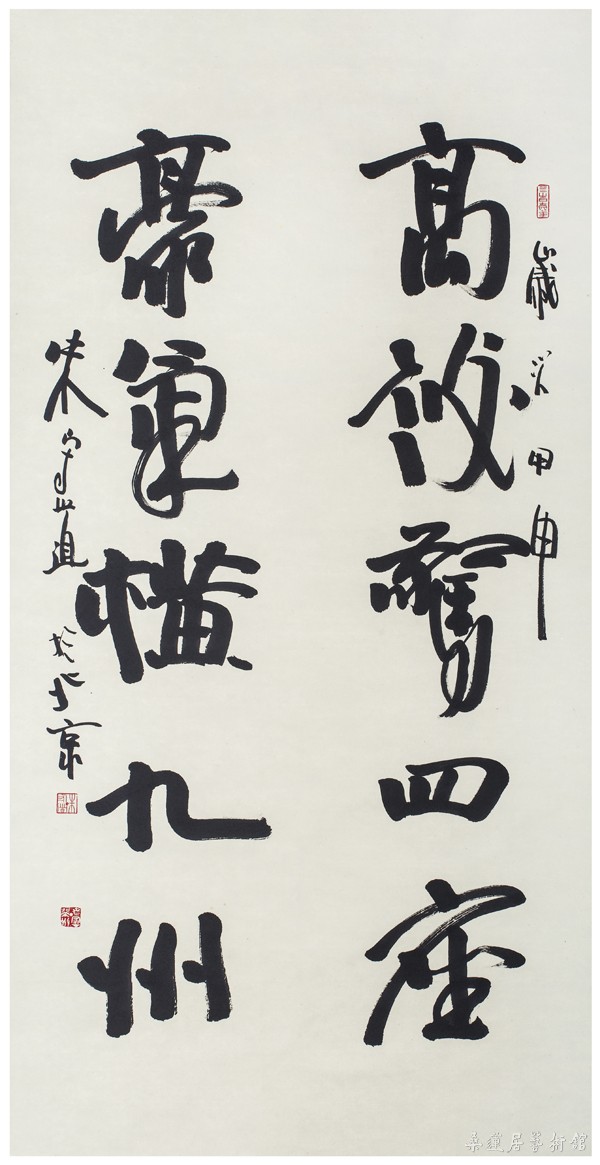 歲次甲申
高談驚四座
豪氣橫九州
朱守道於北京
桑蓮居藝術館